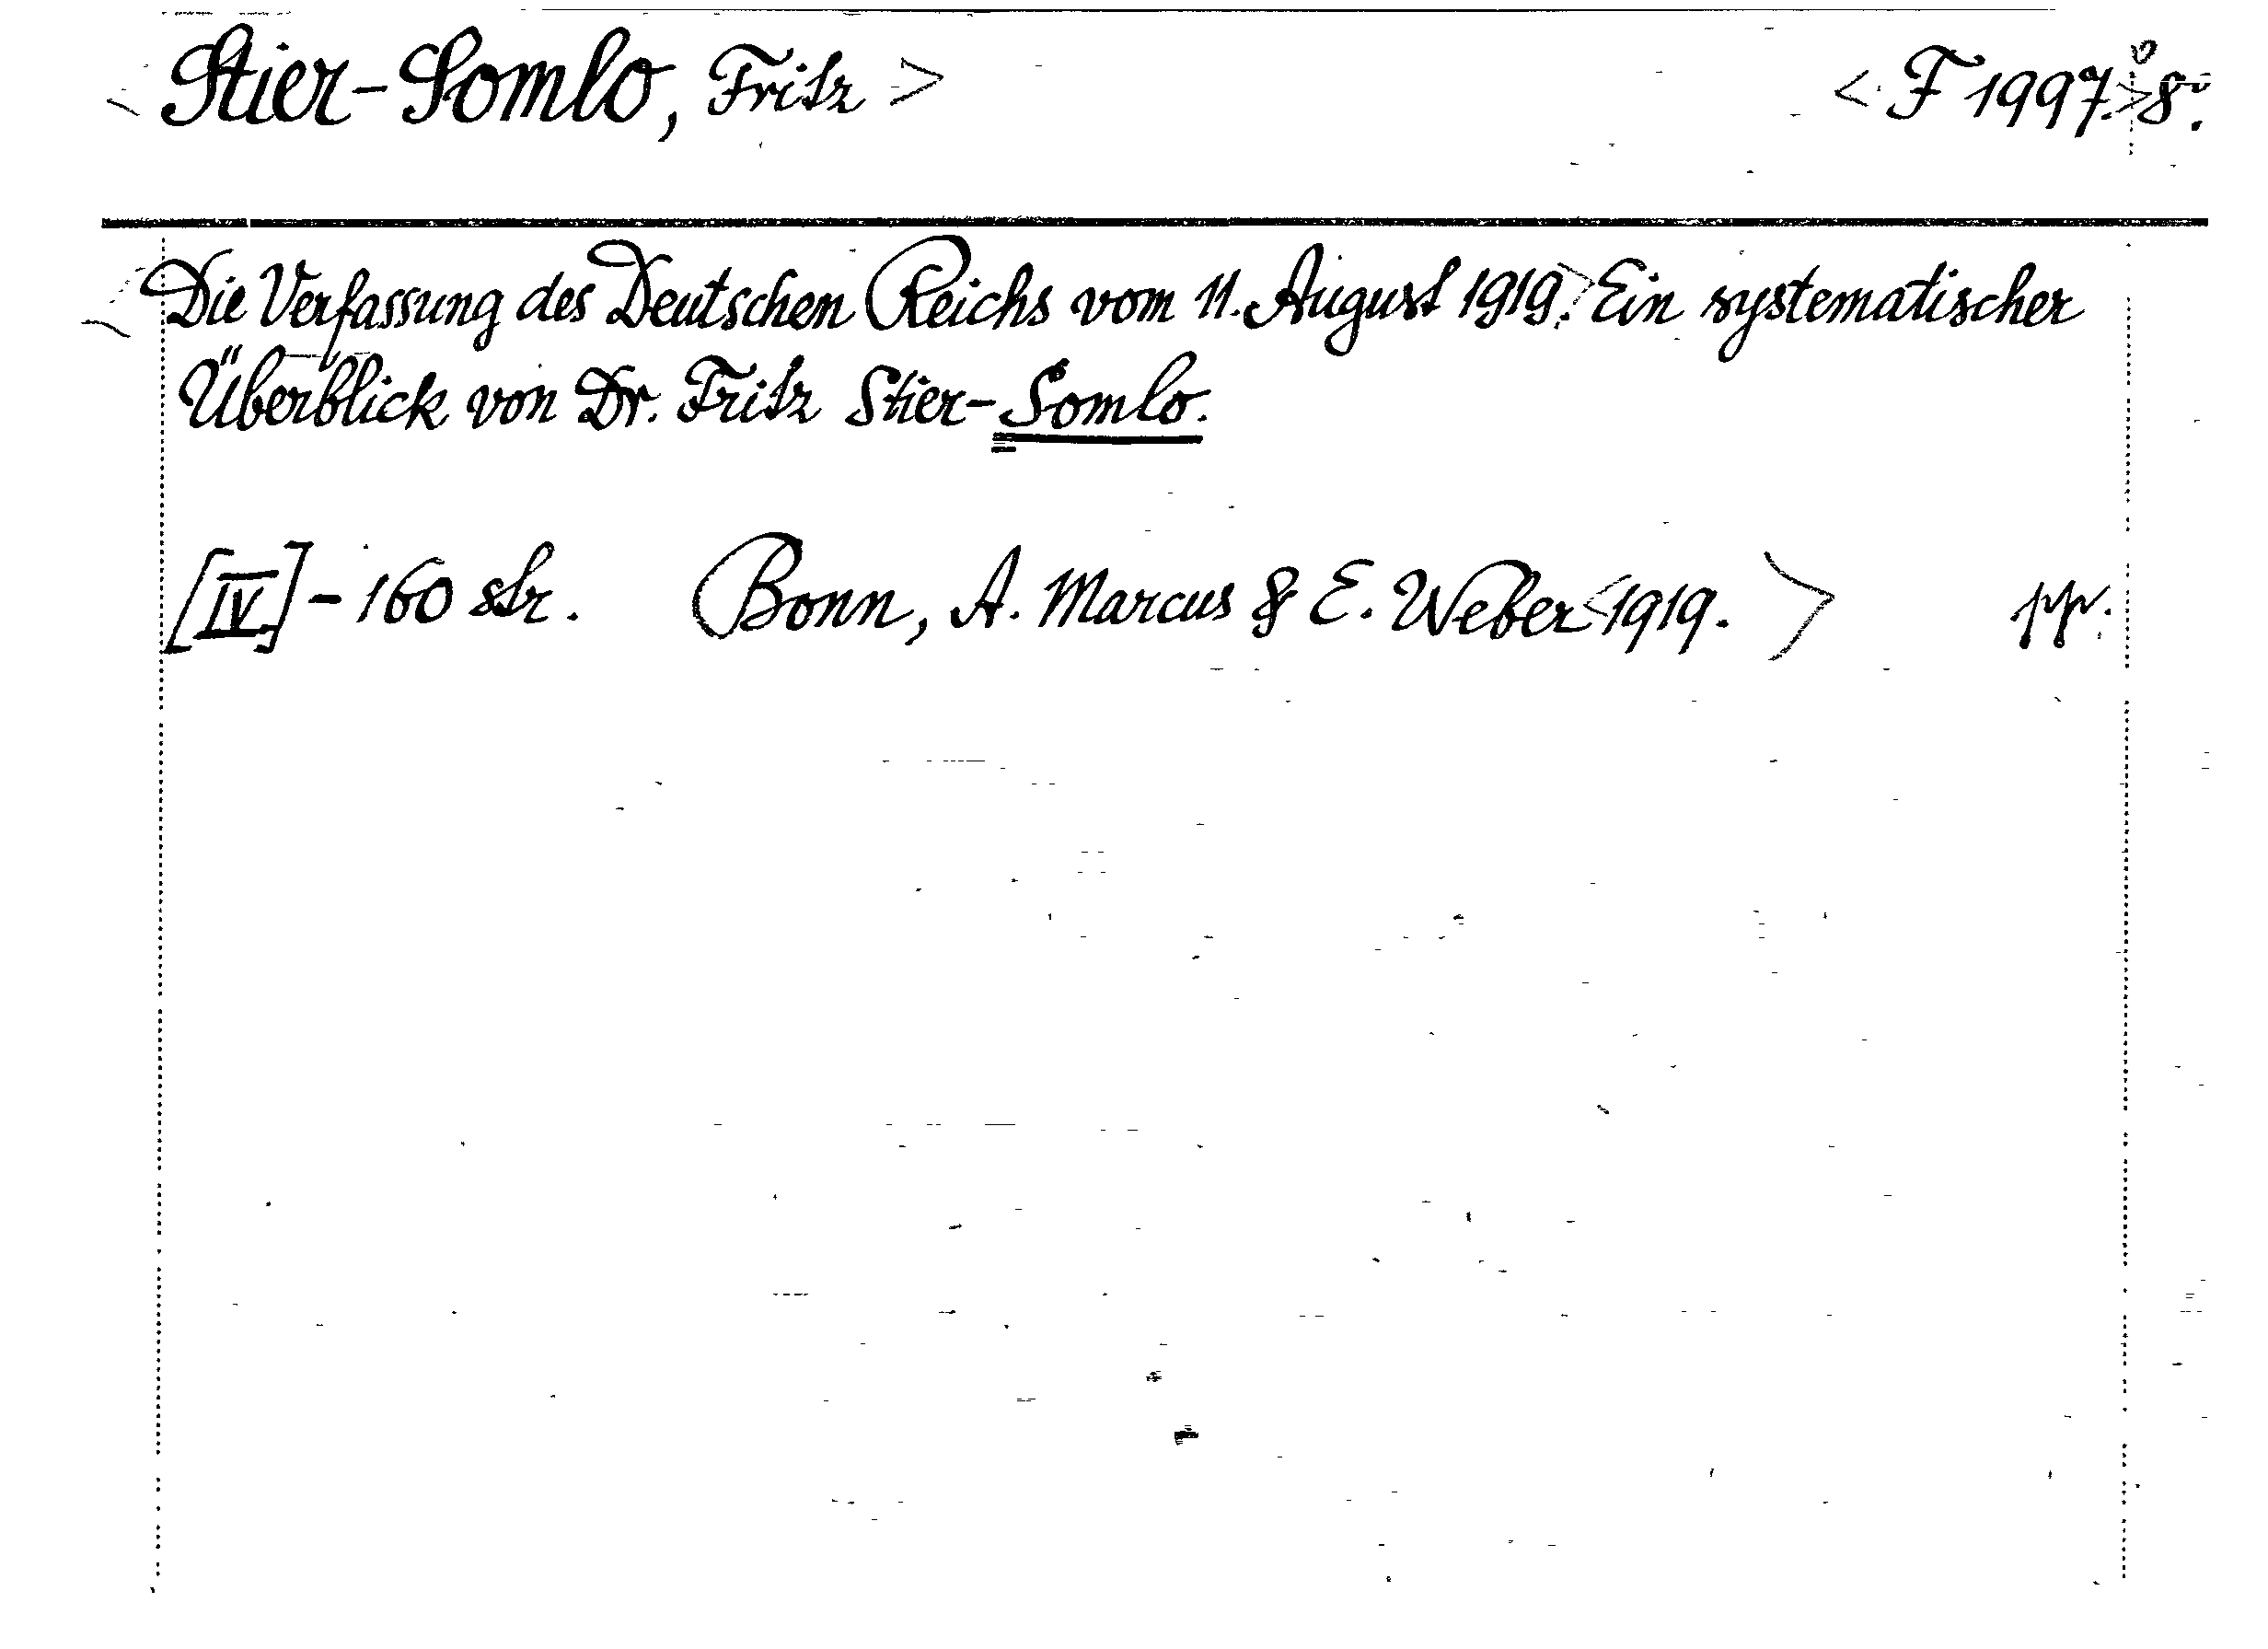 < Stier-Somlo, Fritz > < F 1997. > 8°.
< Die Verfassung des Deutschen Reichs vom 11. August 1919. > Ein systematischer
Überblick von Dr. Fritz Stier-Somlo.
[IV] - 160 str. Bonn, A. Marcus & E. Weber < 1919. > ppr.